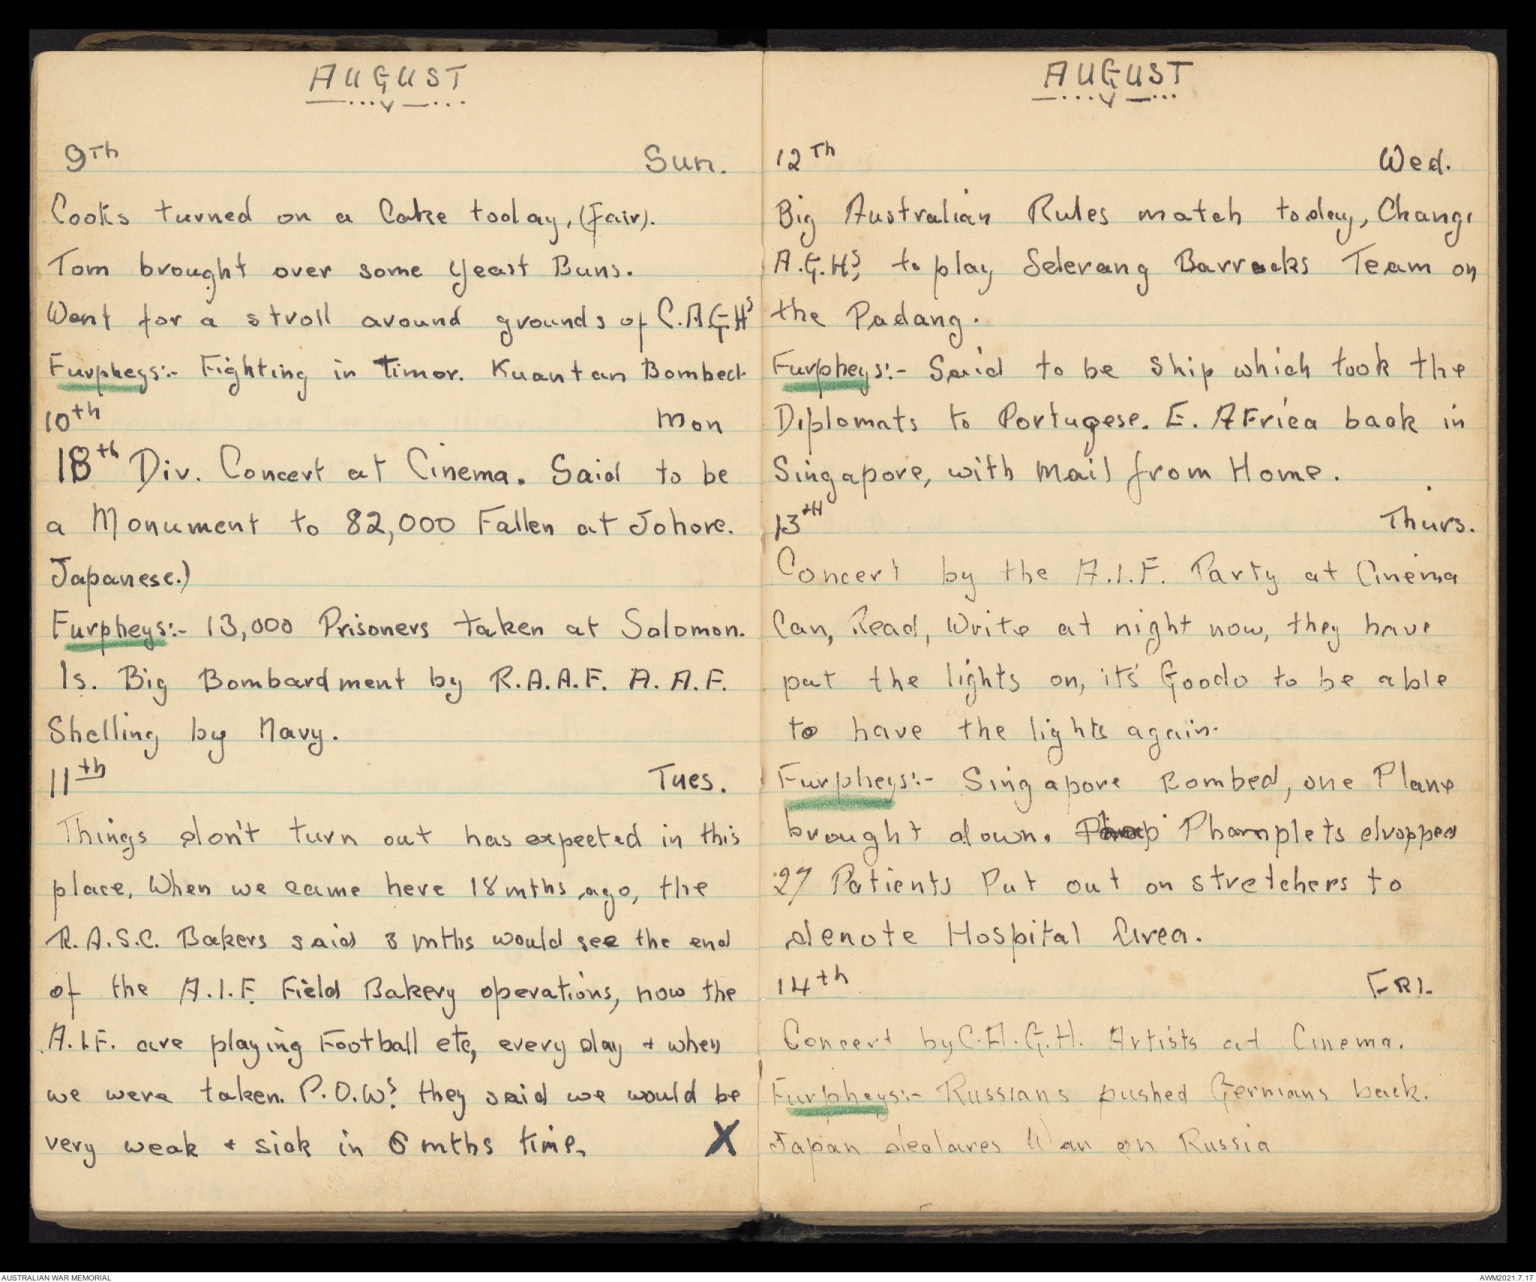 AUGUST
9Th Sun.
Cooks turned on a Cake today, (fair).
Tom brought over some Yeast Buns.
Went for a stroll around grounds of C.A.G.Hs
Furpheys:- Fighting in Timor. Kuantan Bombed.
10th Mon
18th Div. Concert at Cinema. Said to be
a Monument to 82,000 Fallen at Johore.
Japanese.)
Furpheys:- 13,000 Prisoners taken at Solomon.
Is. Big Bombardment by R.A.A.F. A.A.F.
Shelling by Navy.
11th Tues.
Things don't turn out has expected in this
place. When we came here 18 mths ago, the
R.A.S.C. Bakers said 3 mths would see the end
of the A.I.F. Field Bakery operations, now the
A.I.F. are playing Football etc, every day + when
we were taken P.O.Ws they said we would be
very weak + sick in 6 mths time. X
AUGUST
12Th Wed.
Big Australian Rules match today, Changi
A.G.Hs, to play Selerang Barracks Team on
the Padang.
Furpheys:- Said to be Ship which took the
Diplomats to Portugese. E. AFrica back in
Singapore, with mail from Home.
13tH Thurs.
Concert by the A.I.F. Party at Cinema
Can, Read, Write at night now, they have
put the lights on, it's Goodo to be able
to have the lights again.
Furpheys:- Singapore Bombed, one Plane
brought down. Phamplets dropped
27 Patients Put out on stretchers to
denote Hospital Area.
14th FRI.
Concert by C.A.G.H. Artists at Cinema.
Furpheys:- Russians pushed Germans back.
Japan declares War on Russia
AUSTRALIAN WAR MEMORIAL AWM2021.7.17